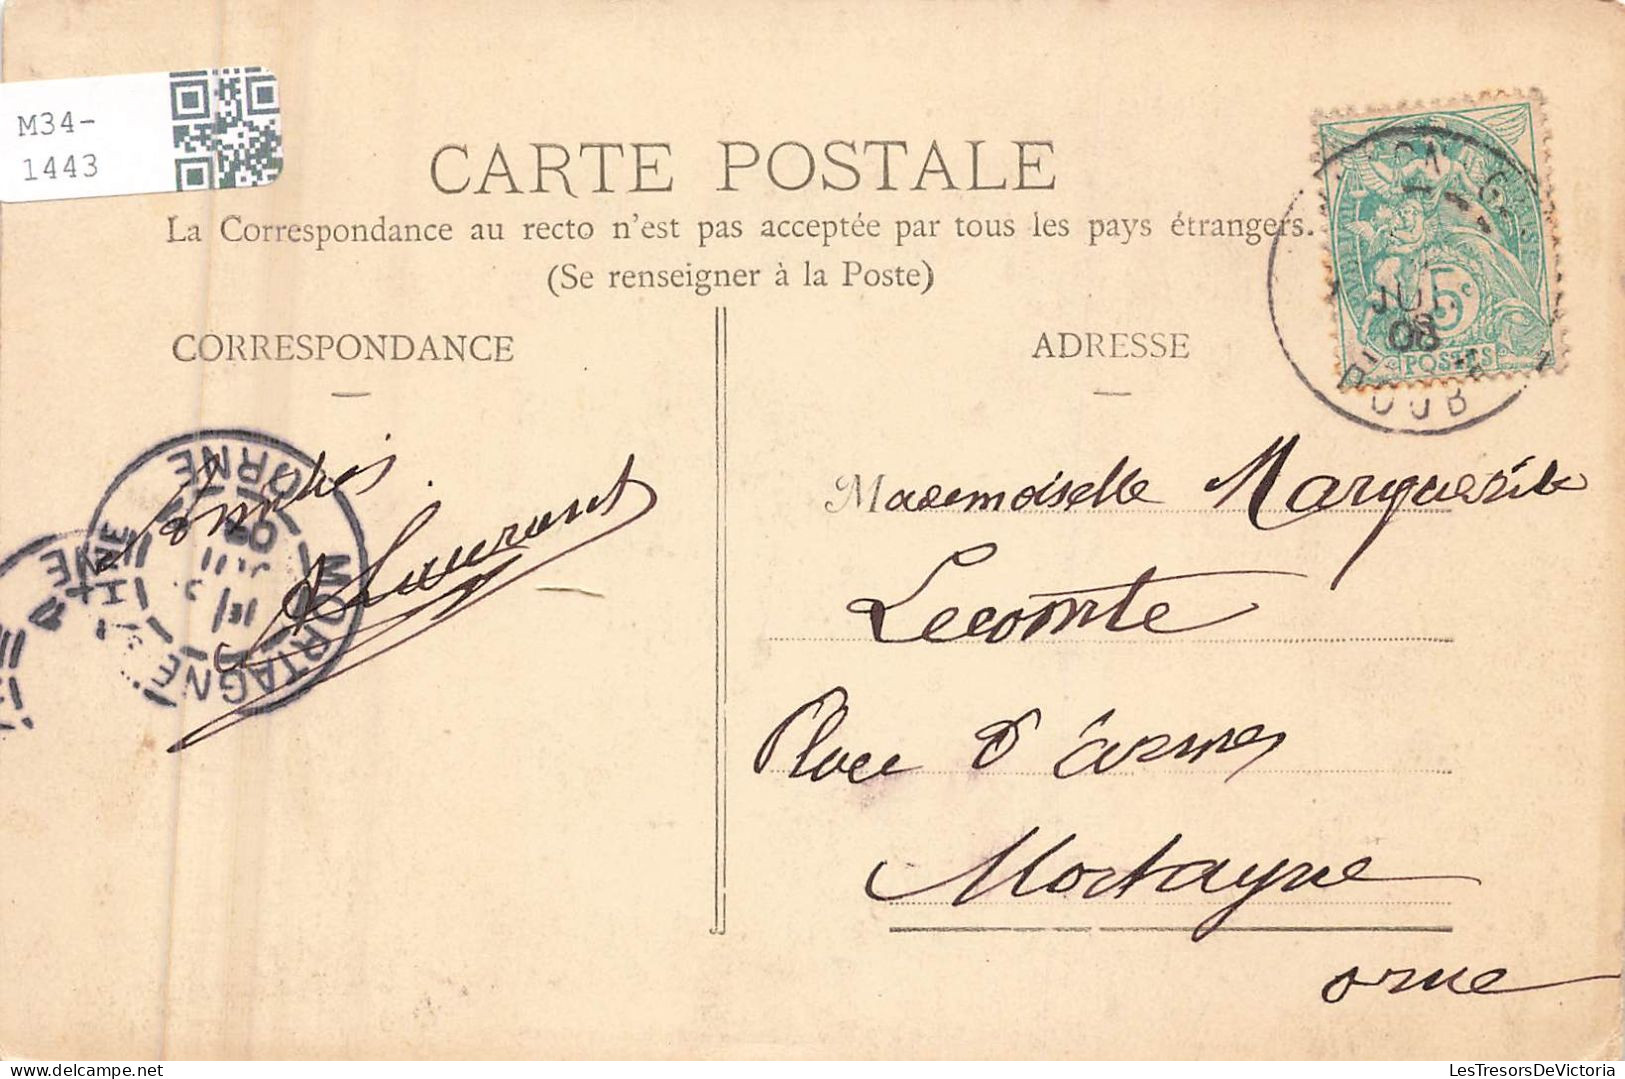 M34-
1443
CARTE POSTALE
La Correspondance au recto n'est pas acceptée par tous les pays étrangers.
(Se renseigner à la Poste)
CORRESPONDANCE
ADRESSE
5c
POSTES
JUIL
08
DOUBS
MORTAGNE
ORNE
Laurent
Mademoiselle Marguerite
Lecomte
Place d'armes
Mortagne
orne
LesTresorsDeVictoria